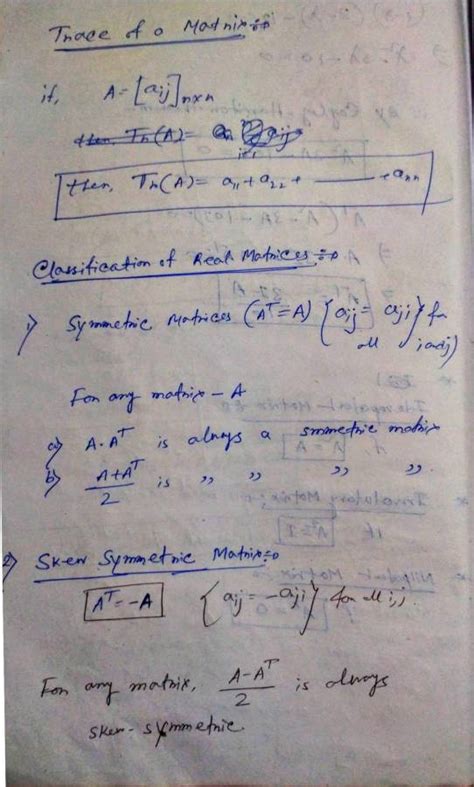 Trace of a Matrix:→
if, A = [aij]n×n
then, Tr(A) = a11 + a22 + ——— + ann
Classification of Real Matrices:→
1) Symmetric Matrices (A^T = A) {aij = aji} for all i, and j)
For any matrix - A
a) A·A^T is always a smmetric matrix
b) (A+A^T)/2 is ,, ,, ,, ,,.
2) Skew Symmetric Matrix:→
A^T = -A {aij = -aji} for all i,j.
For any matrix, (A-A^T)/2 is always
skew-symmetric